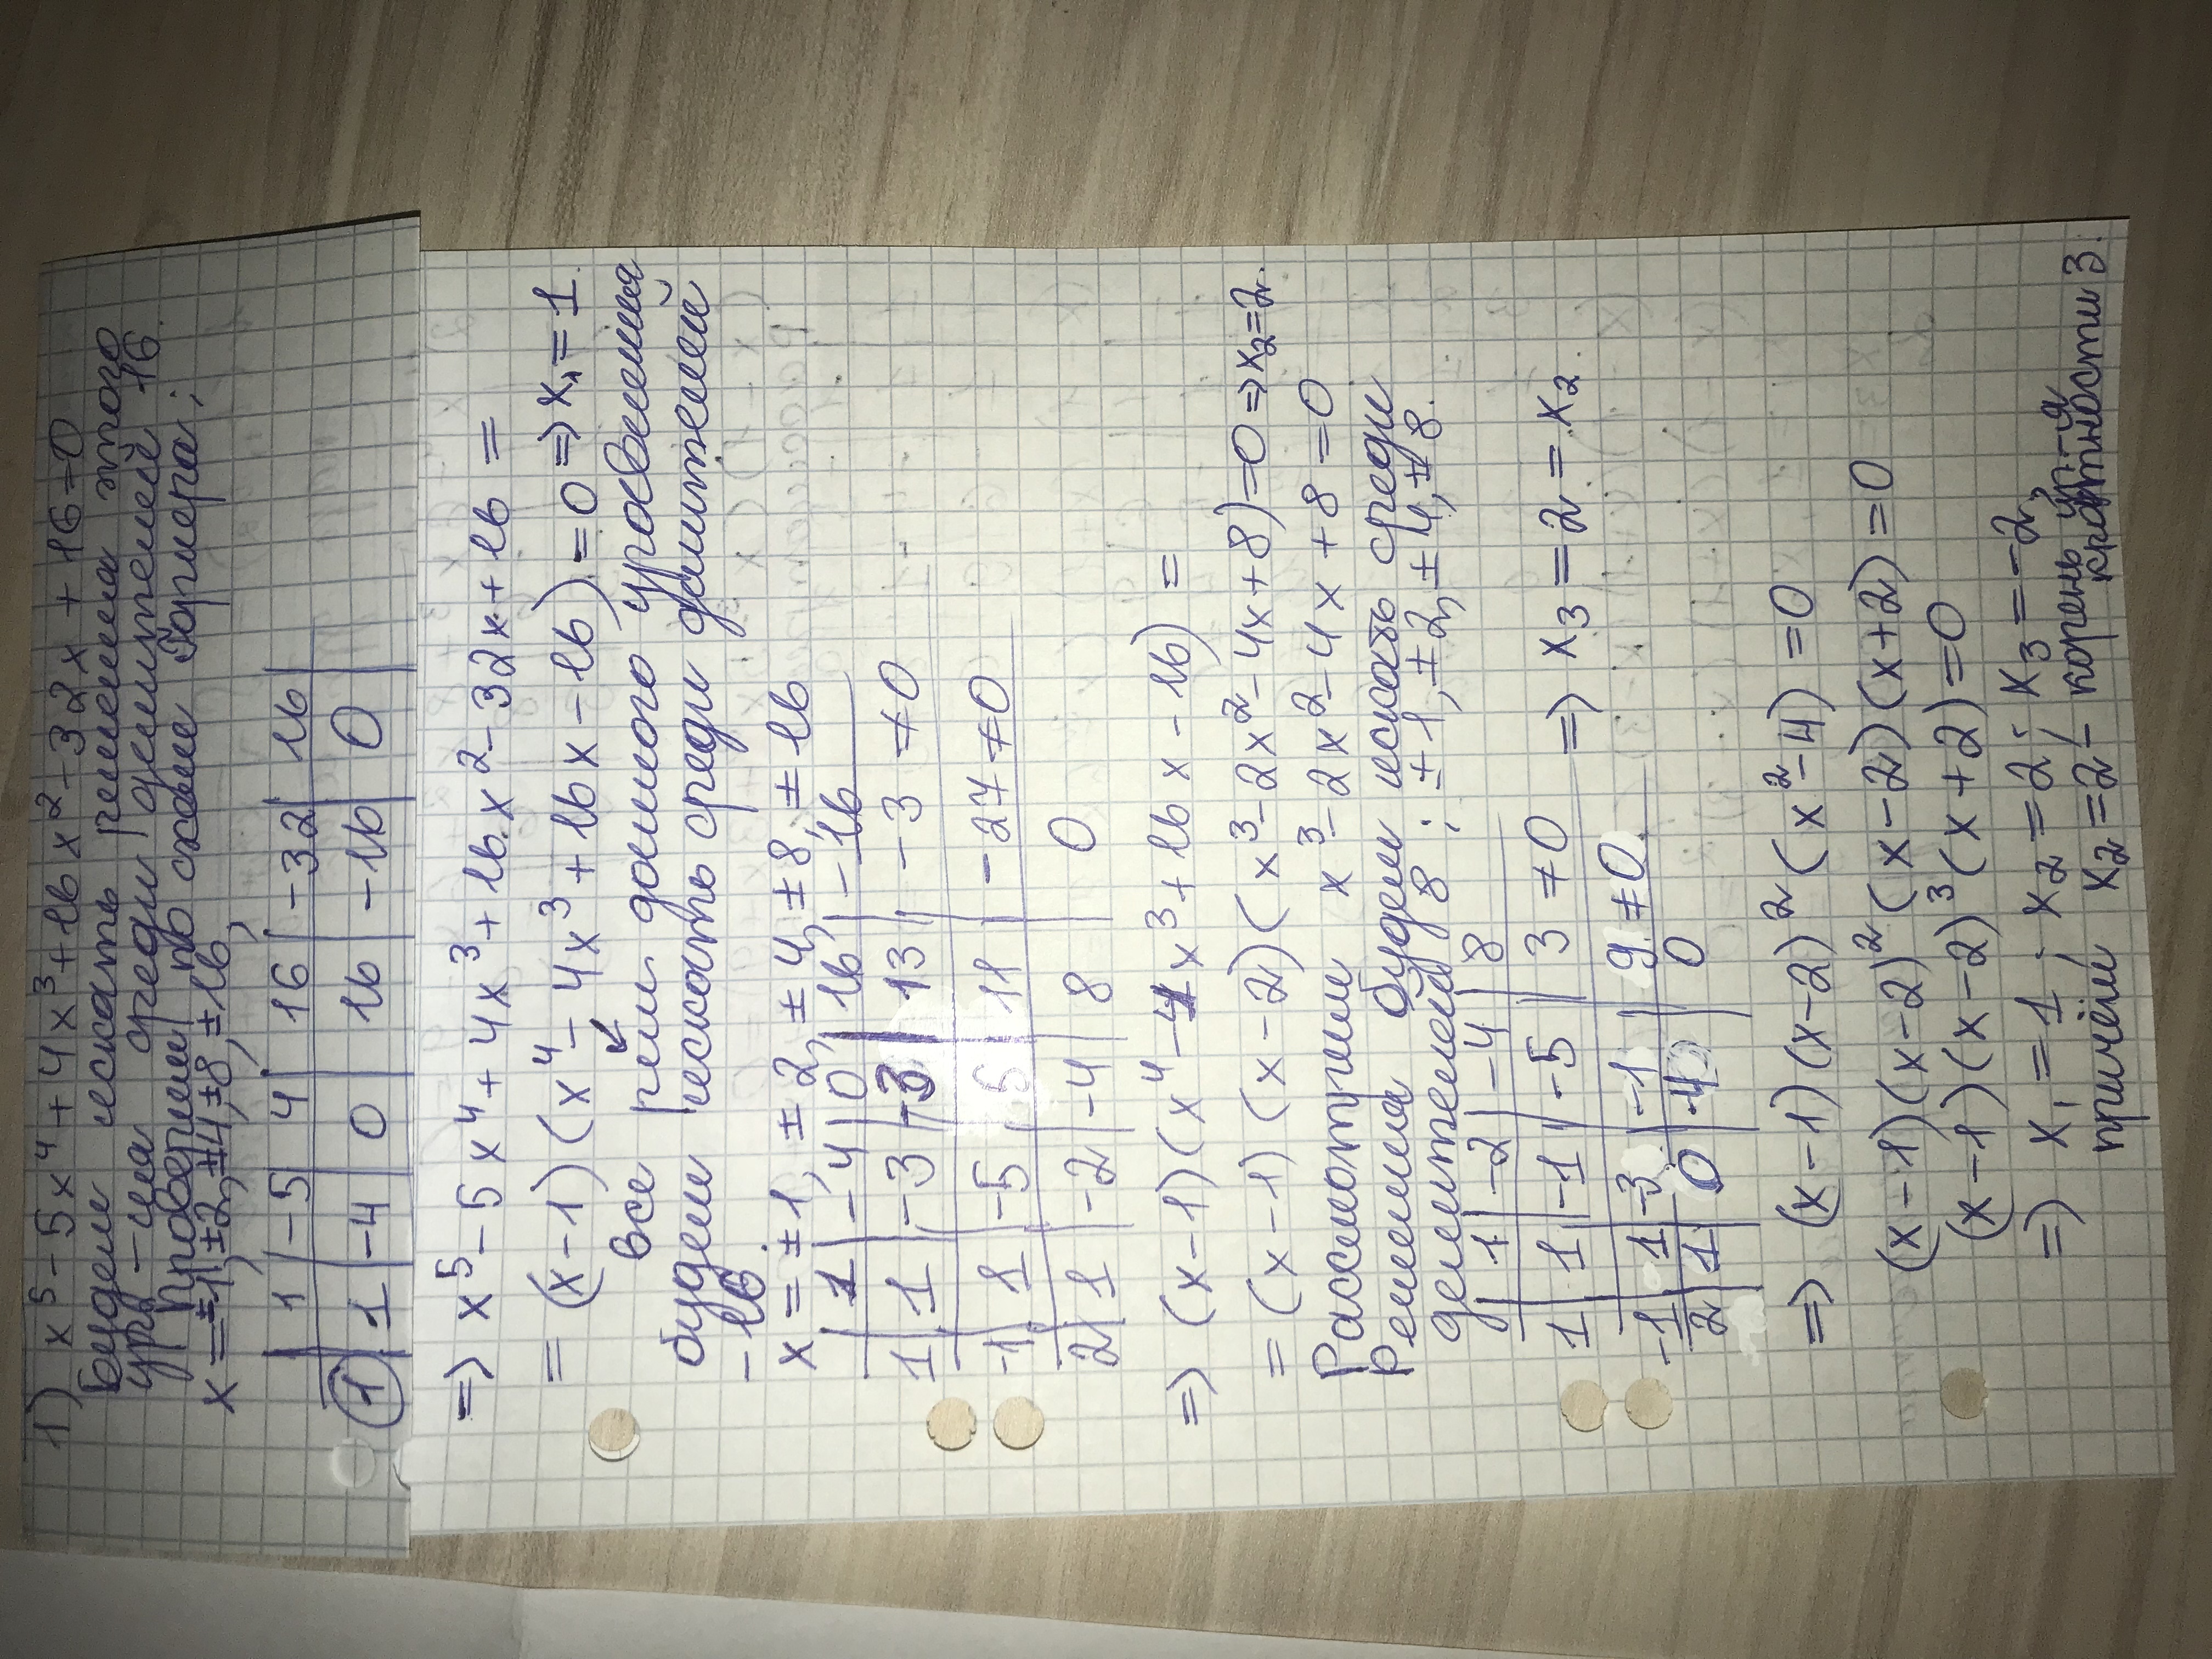 1) x⁵ - 5x⁴ + 4x³ + 16x² - 32x + 16 = 0
Будем искать решения этого
ур-ния среди делителей 16.
Проверим по схеме Горнера:
x = ±1, ±2, ±4, ±8, ±16,
| 1 | -5 | 4 | 16 | -32 | 16 |
1 | 1 | -4 | 0 | 16 | -16 | 0 |
=> x⁵ - 5x⁴ + 4x³ + 16x² - 32x + 16 =
= (x-1)(x⁴ - 4x³ + 16x - 16) = 0 => x₁ = 1.
Все реш. данного уравнения
будем искать среди делителей
-16
x = ±1, ±2, ±4, ±8, ±16
| 1 | -4 | 0 | 16 | -16
1 | 1 | -3 | -3 | 13 | -3 ≠ 0
-1 | 1 | -5 | 5 | 11 | -27 ≠ 0
2 | 1 | -2 | -4 | 8 | 0
=> (x-1)(x⁴ - 4x³ + 16x - 16) =
= (x-1)(x-2)(x³ - 2x² - 4x + 8) = 0 => x₂ = 2.
Рассмотрим x³ - 2x² - 4x + 8 = 0
Решения будем искать среди
делителей 8: ±1, ±2, ±4, ±8.
| 1 | -2 | -4 | 8
1 | 1 | -1 | -5 | 3 ≠ 0
-1 | 1 | -3 | -1 | 9 ≠ 0.
2 | 1 | 0 | -4 | 0
=> x₃ = 2 = x₂
=> (x-1)(x-2)²(x²-4) = 0
(x-1)(x-2)²(x-2)(x+2) = 0
(x-1)(x-2)³(x+2) = 0
=> x₁ = 1; x₂ = 2; x₃ = -2,
причём x₂ = 2 - корень ур-я
кратности 3.